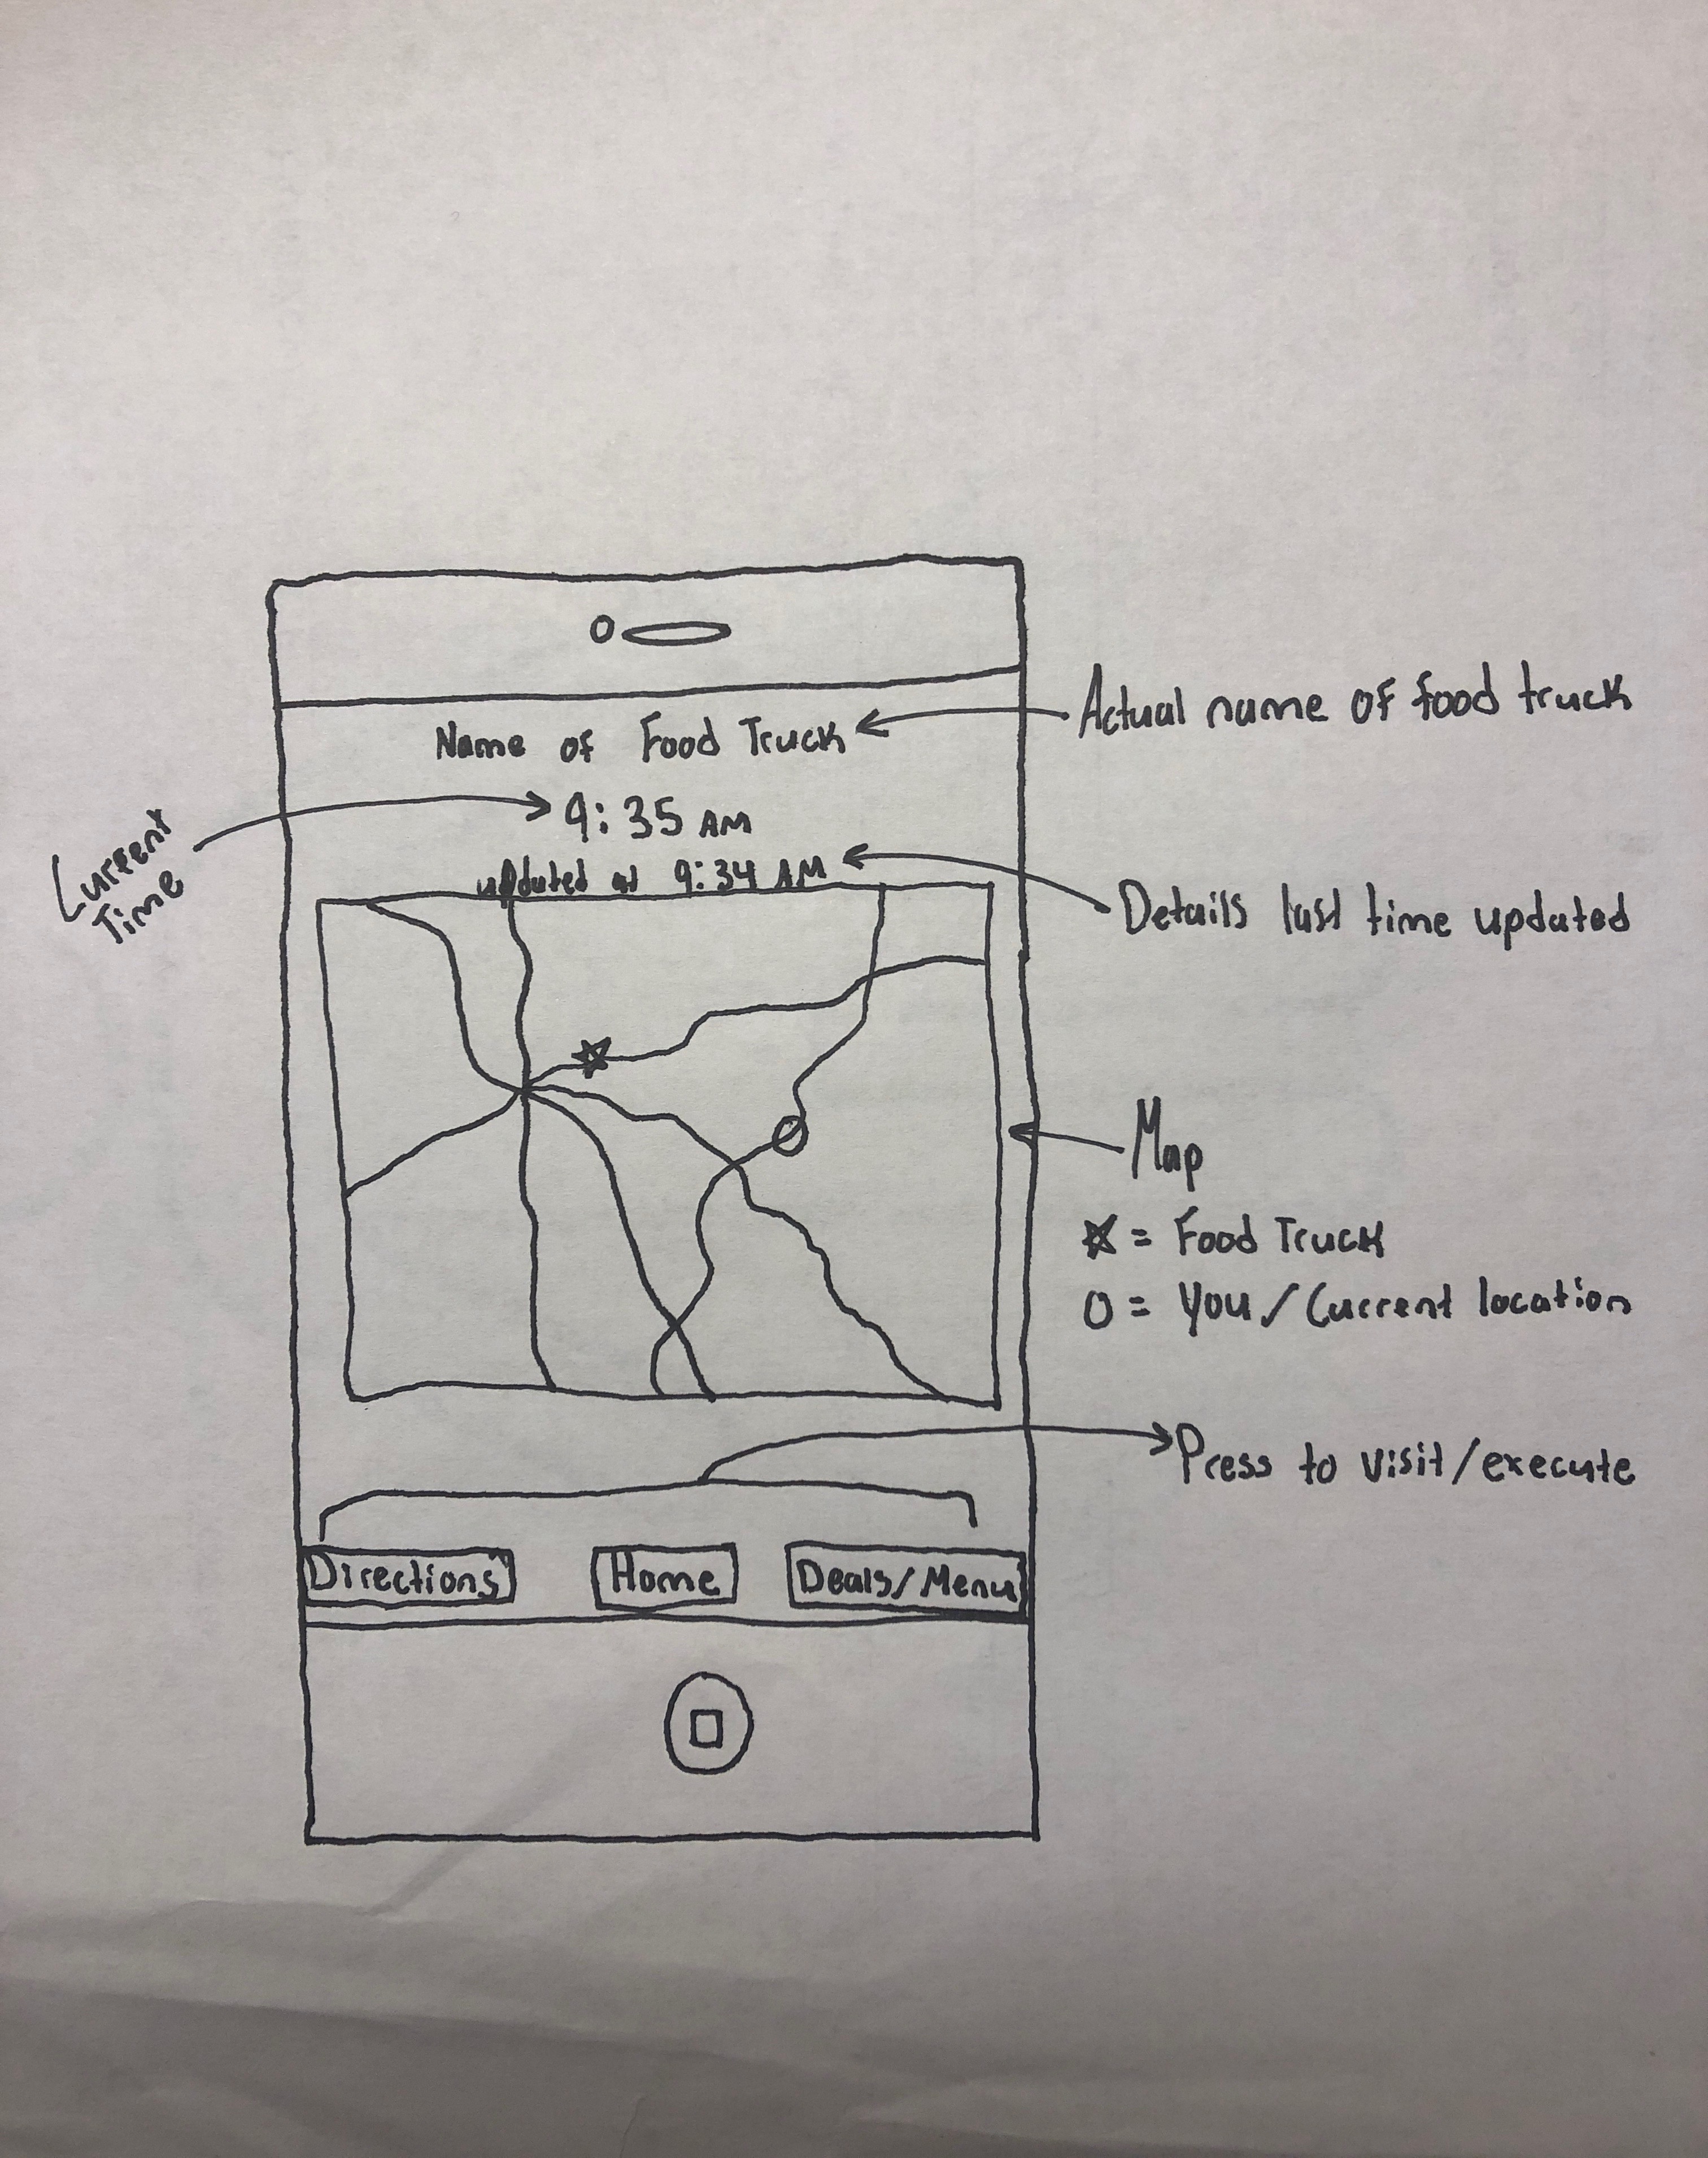 Name of Food Truck
Actual name of food truck
9:35 AM
Current
Time
updated at 9:34 AM
Details last time updated
Map
= Food Truck
O = You / Current location
Press to visit/execute
Directions
Home
Deals/Menu